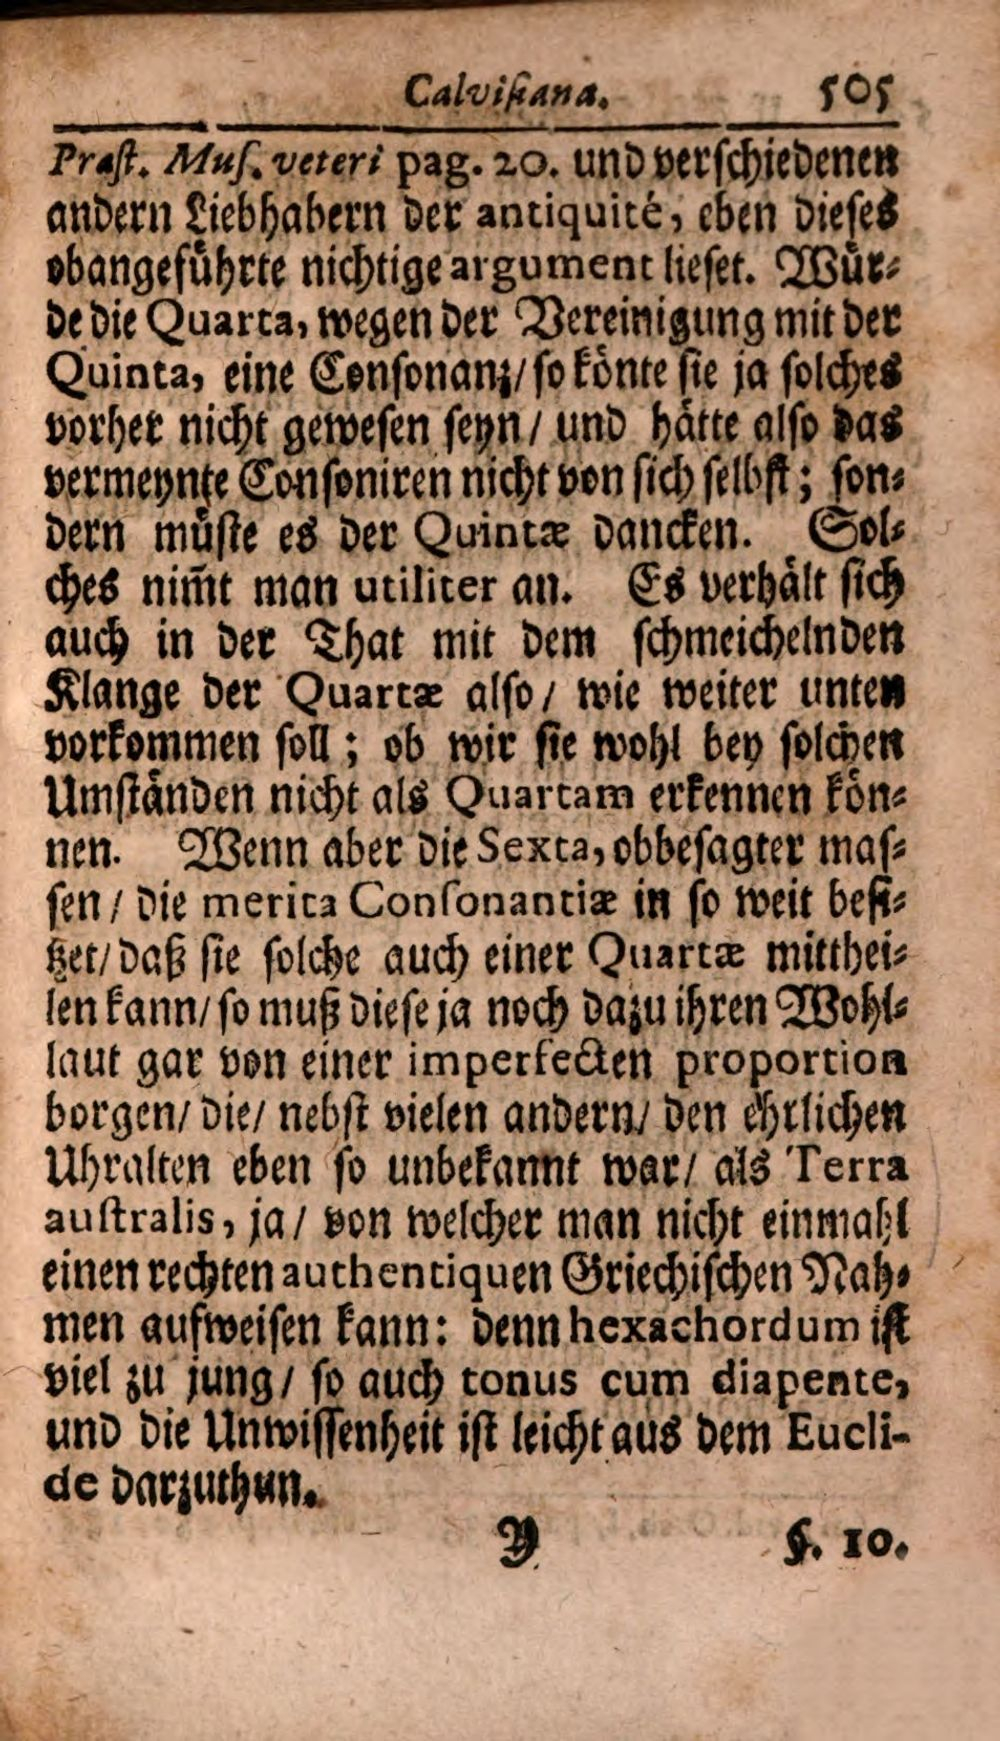 Calviſiana. 505
Præſt. Muſ. veteri pag. 20. und verſchiedenen
andern Liebhabern der antiquité, eben dieſes
obangefuͤhrte nichtige argument lieſet. Wuͤr⸗
de die Quarta, wegen der Vereinigung mit der
Quinta, eine Conſonanz/ ſo koͤnte ſie ja ſolches
vorher nicht geweſen ſeyn/ und haͤtte alſo das
vermeynte Conſoniren nicht von ſich ſelbſt; ſon⸗
dern muͤſte es der Quintæ dancken. Sol⸗
ches nim̃t man utiliter an. Es verhaͤlt ſich
auch in der That mit dem ſchmeichelnden
Klange der Quartæ alſo/ wie weiter unten
vorkommen ſoll; ob wir ſie wohl bey ſolchen
Umſtaͤnden nicht als Quartam erkennen koͤn⸗
nen. Wenn aber die Sexta, obbeſagter maſ⸗
ſen/ die merita Conſonantiæ in ſo weit beſi⸗
tzet/ daß ſie ſolche auch einer Quartæ mitthei⸗
len kann/ ſo muß dieſe ja noch dazu ihren Wohl⸗
laut gar von einer imperfecten proportion
borgen/ die/ nebſt vielen andern/ den ehrlichen
Uhralten eben ſo unbekannt war/ als Terra
auſtralis, ja/ von welcher man nicht einmahl
einen rechten authentiquen Griechiſchen Nah⸗
men aufweiſen kann: denn hexachordum iſt
viel zu jung/ ſo auch tonus cum diapente,
und die Unwiſſenheit iſt leicht aus dem Eucli-
de darzuthun.
Y §. 10.